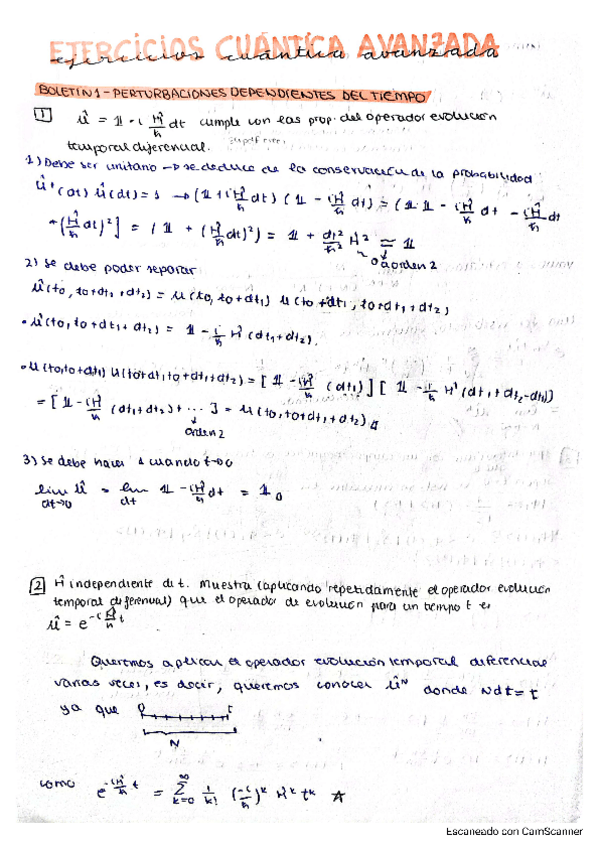 EJERCICIOS CUÁNTICA AVANZADA
ejercicios cuántica avanzada
BOLETIN 1 - PERTURBACIONES DEPENDIENTES DEL TIEMPO
1 û = 𝟙 - i Ĥ/ħ dt cumple con las prop. del operador evolución
temporal diferencial.
1) Debe ser unitario → se deduce de la conservación de la probabilidad
û⁺(dt) û(dt) = 1 → (𝟙 + iĤ/ħ dt) (𝟙 - iĤ/ħ dt) = (𝟙 𝟙 - iĤ/ħ dt - iĤ/ħ dt
+ (Ĥ/ħ dt)²] = (𝟙 + (Ĥ/ħ dt)²) = 𝟙 + dt²/ħ² Ĥ² ≃ 𝟙
0 a orden 2
2) Se debe poder separar
û(t0, t0+dt1+dt2) = u(t0, t0+dt1) u(t0+dt1, t0+dt1+dt2)
• û(t0, t0+dt1+dt2) = 𝟙 - i/ħ Ĥ (dt1+dt2).
• u(t0,t0+dt1) u(t0+dt1,t0+dt1+dt2) = [𝟙 - iĤ/ħ (dt1)] [𝟙 - i/ħ Ĥ (dt1+dt2-dt1)]
= [𝟙 - iĤ/ħ (dt1+dt2) + ...] = u(t0,t0+dt1+dt2)
orden 2
3) Se debe hacer 1 cuando t→0
lim û = lim 𝟙 - iĤ/ħ dt = 𝟙
dt→0 dt
2 Ĥ independiente de t. Muestra (aplicando repetidamente el operador evolución
temporal diferencial) que el operador de evolución para un tiempo t es
û = e^(-i Ĥ/ħ t)
Queremos aplicar el operador evolución temporal diferencial
varias veces, es decir, queremos conocer û^N donde Ndt = t
ya que 0 t
N
como e^(-iĤ/ħ t) = ∑_{k=0}^∞ 1/k! (-i/ħ)^k Ĥ^k t^k
Escaneado con CamScanner